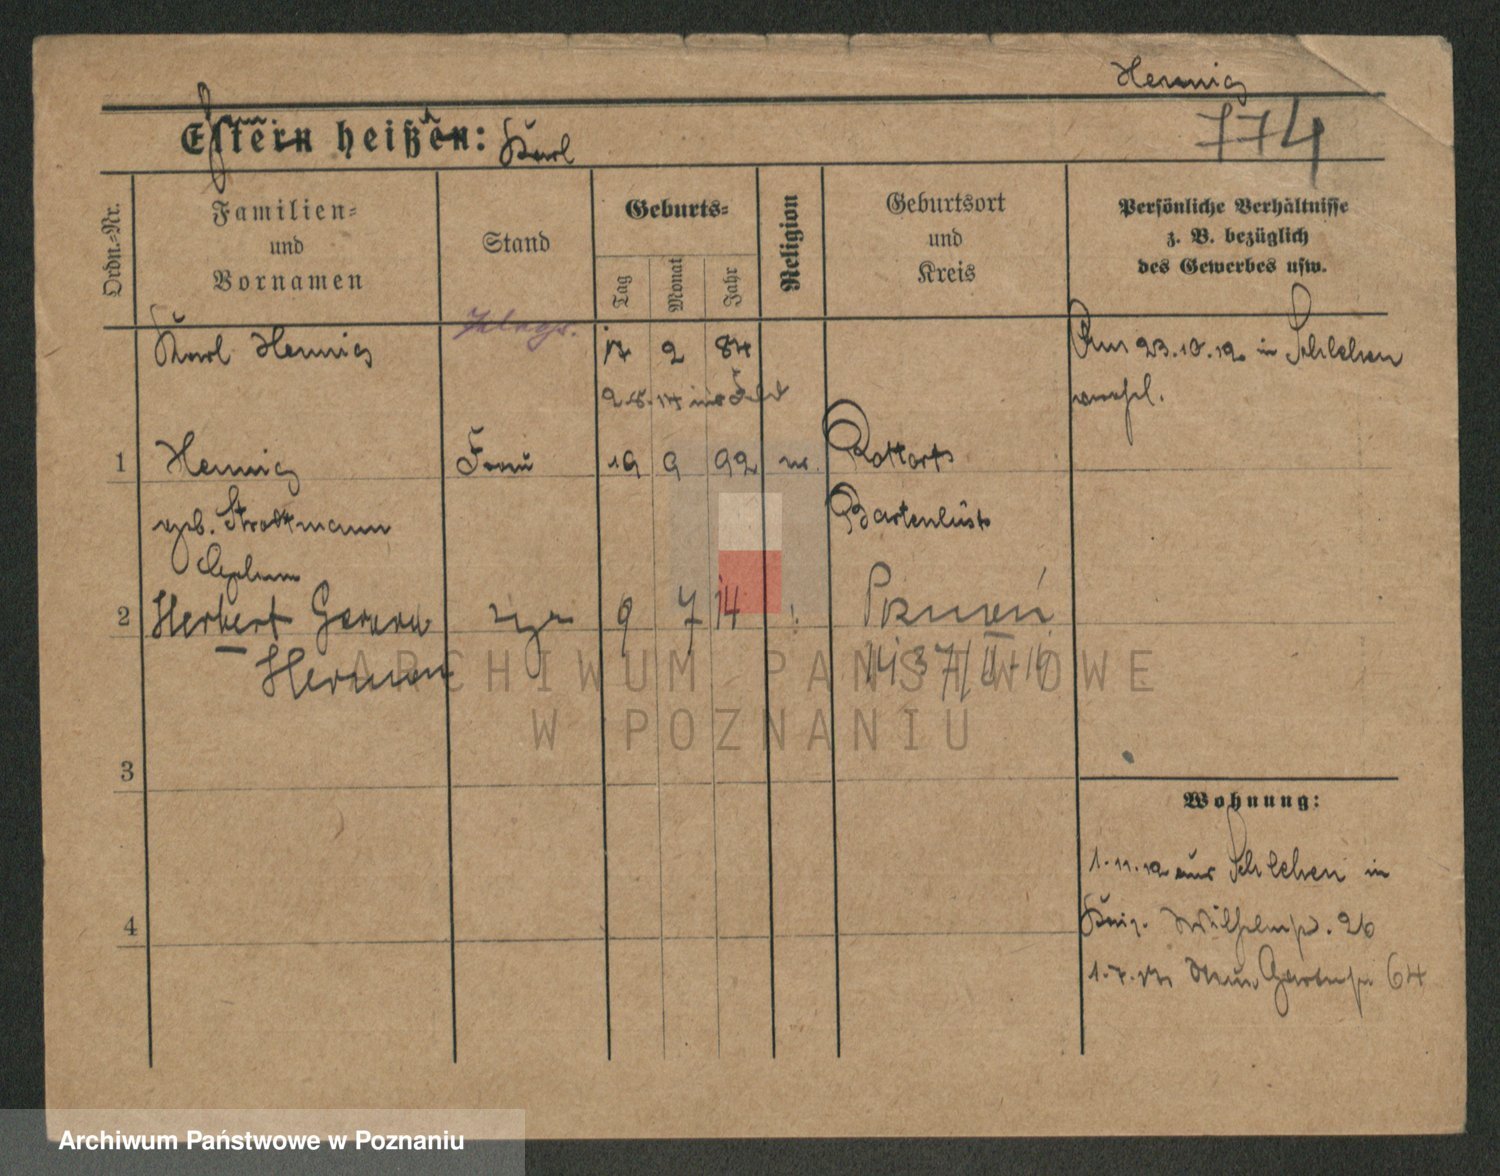 Hennig
774
Eltern heißen: Karl
Ordn.-Nr.
Familien-
und
Vornamen
Stand
Geburts-
Tag
Monat
Jahr
Religion
Geburtsort
und
Kreis
Persönliche Verhältnisse
z. B. bezüglich
des Gewerbes usw.
Karl Hennig
17 2 84
Am 23.10.12 in Schlehen
2.8.14 ins Feld
1 Hennig Frau 19 9 92
geb. Strottmann
Bartenlust
2 Herbert 9 7 14 Poznań
Herman
3
4
Wohnung:
1.11.12 aus Schlehen in
26
1.7. Gartenstr 64
ARCHIWUM PAŃSTWOWE
W POZNANIU
Archiwum Państwowe w Poznaniu